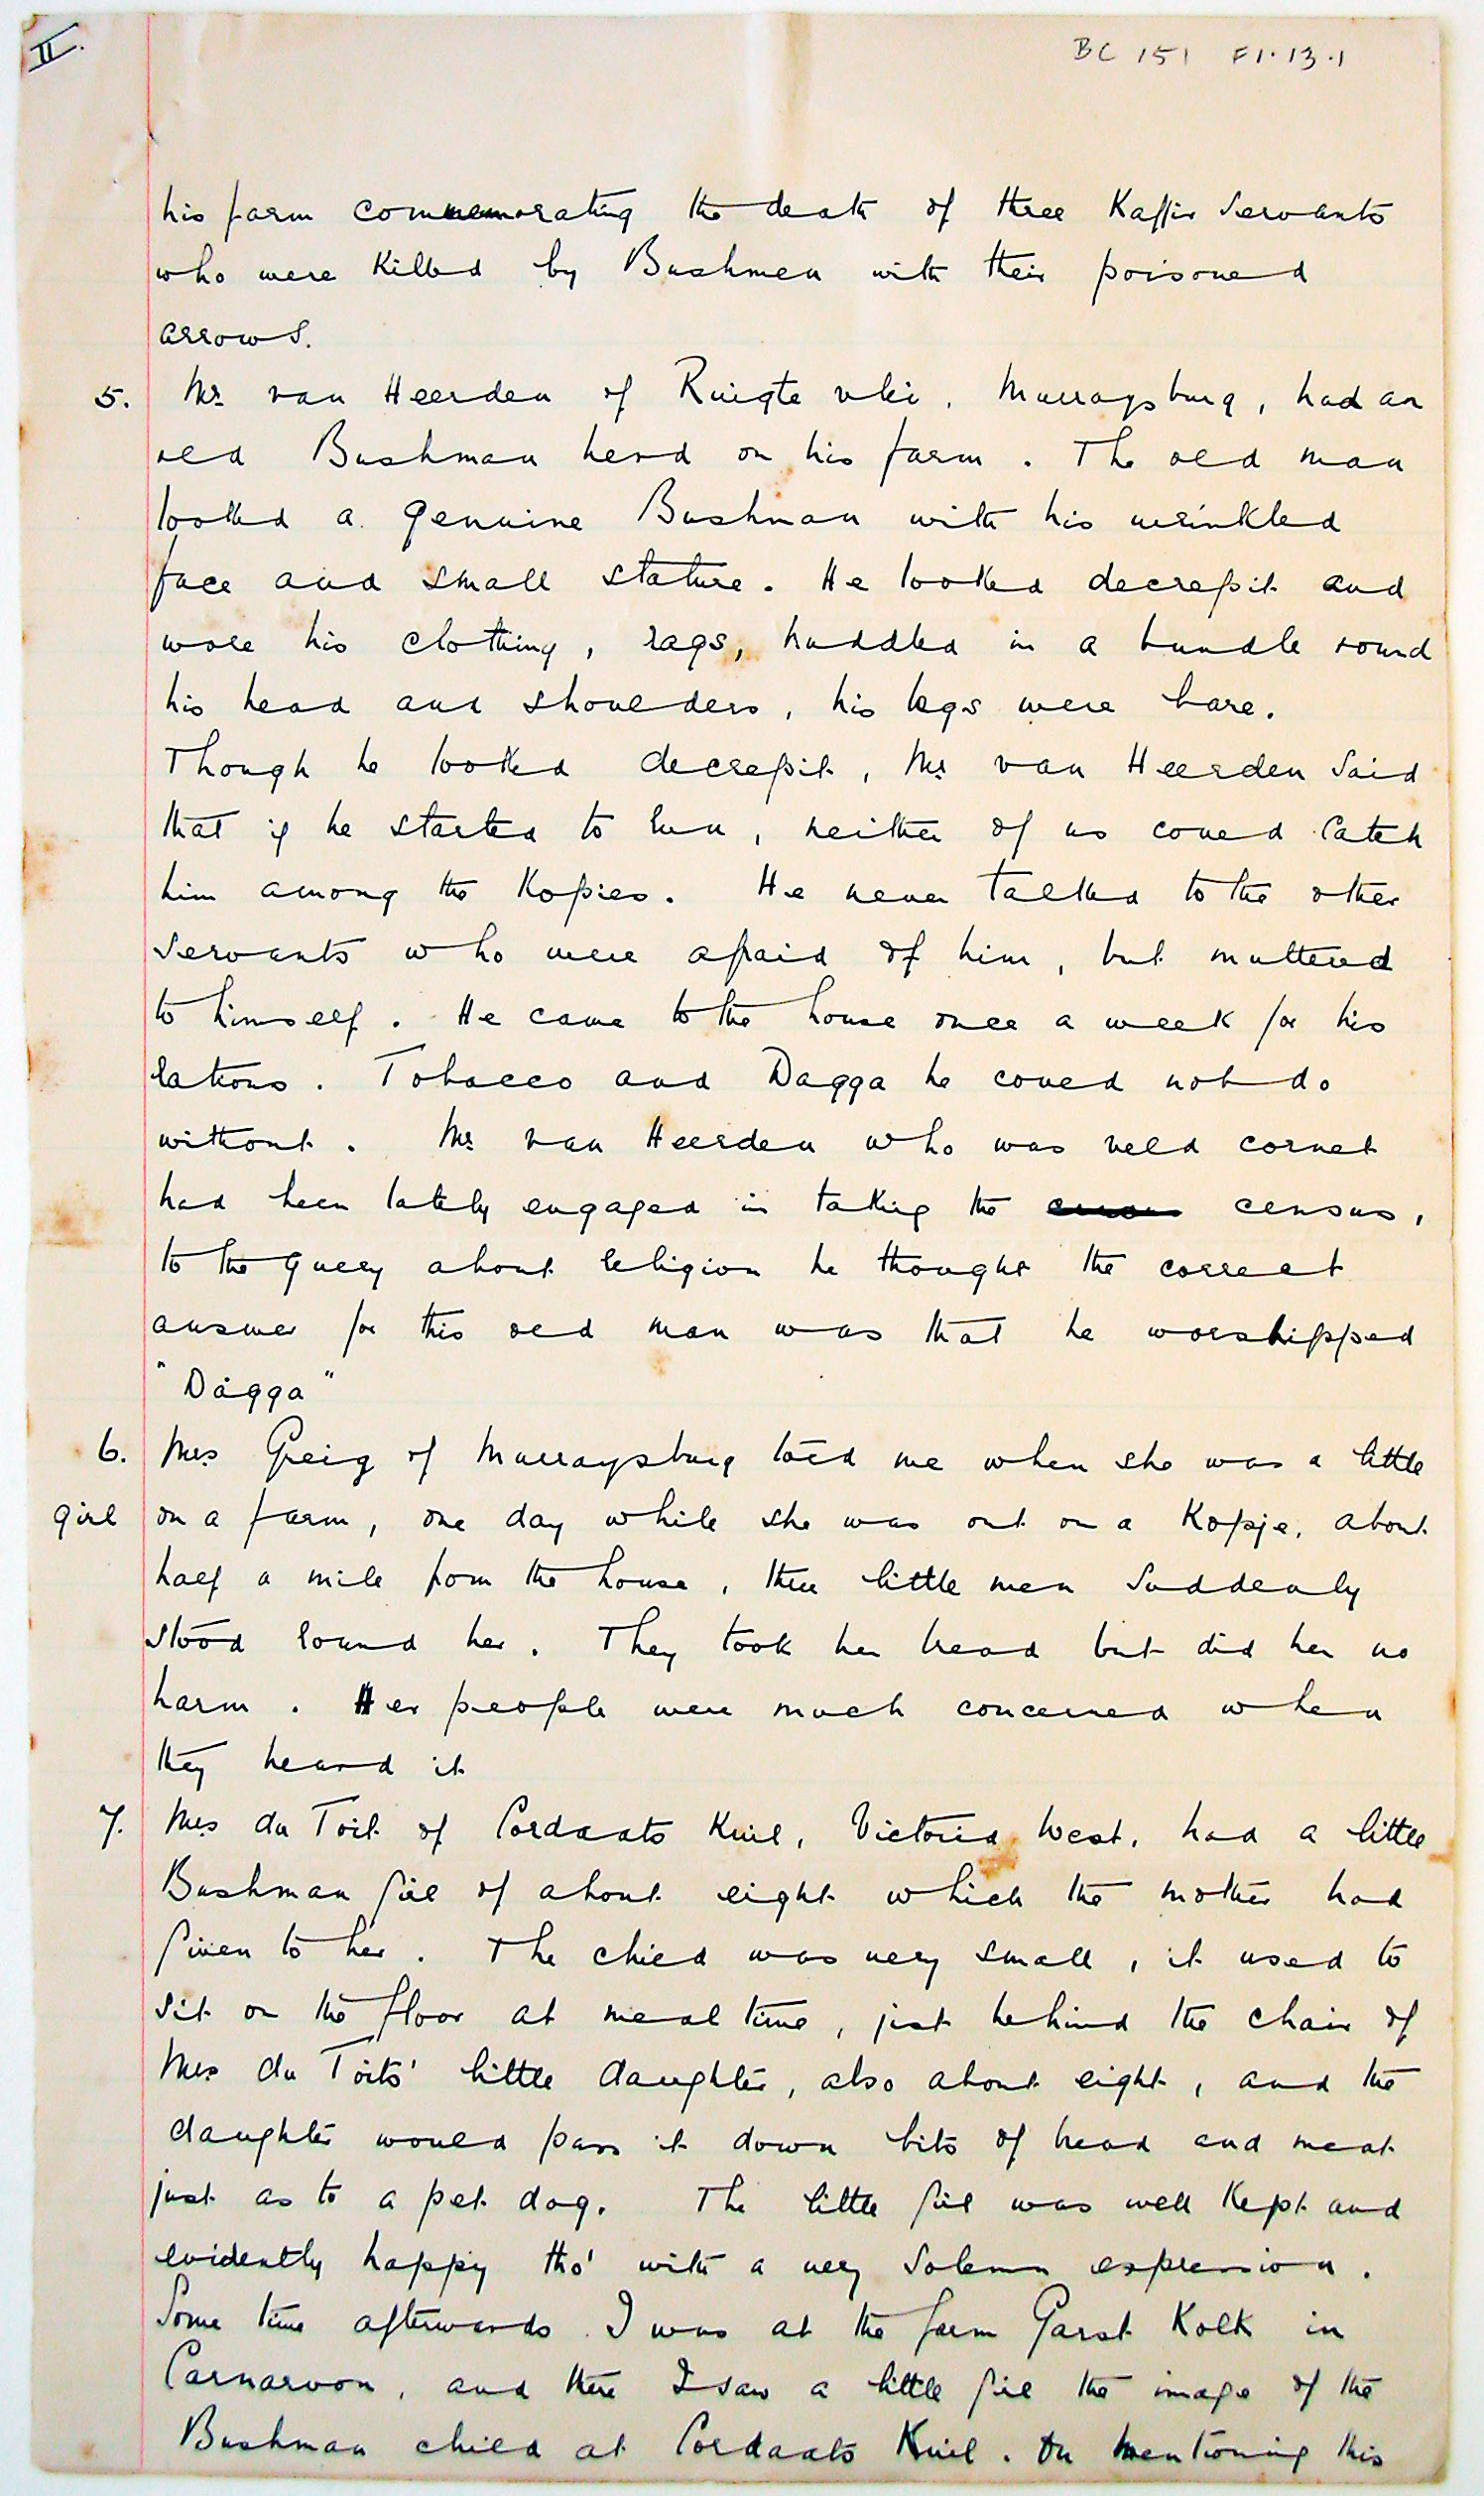 II.
BC 151 F1.13.1
his farm commemorating the death of three Kaffir Servants
who were killed by Bushmen with their poisoned
arrows.
5. Mr van Heerden of Ruigte vlei, Murraysburg, had an
old Bushman herd on his farm. The old man
looked a genuine Bushman with his wrinkled
face and small stature. He looked decrepit and
wore his clothing, rags, huddled in a bundle round
his head and shoulders, his legs were bare.
Though he looked decrepit, Mr van Heerden said
that if he started to run, neither of us could catch
him among the Kopies. He never talked to the other
Servants who were afraid of him, but muttered
to himself. He came to the house once a week for his
rations. Tobacco and Dagga he could not do
without. Mr van Heerden who was veld cornet
had been lately engaged in taking the census,
to the query about religion he thought the correct
answer for this old man was that he worshipped
"Dagga"
6. Mrs Greig of Murraysburg told me when she was a little
girl on a farm, one day while she was out on a Kopje, about
half a mile from the house, three little men suddenly
stood round her. They took her bread but did her no
harm. Her people were much concerned when
they heard it
7. Mrs du Toit of Cordaats Kuil, Victoria West, had a little
Bushman girl of about eight which the mother had
given to her. The child was very small, it used to
sit on the floor at meal time, just behind the chair of
Mrs du Toits' little daughter, also about eight, and the
daughter would pass it down bits of bread and meat
just as to a pet dog. The little girl was well kept and
evidently happy tho' with a very solemn expression.
Some time afterwards I was at the farm Garst Kolk in
Carnarvon, and there I saw a little girl the image of the
Bushman child at Cordaats Kuil. On mentioning this